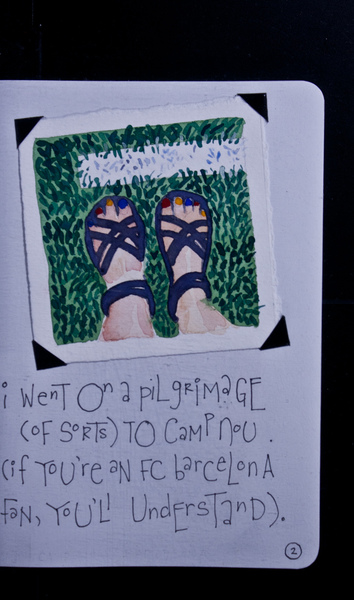 i went On a pilgrimage
(of sorts) TO Camp nou.
(if You're an FC barcelona
fan, You'll Understand).
2